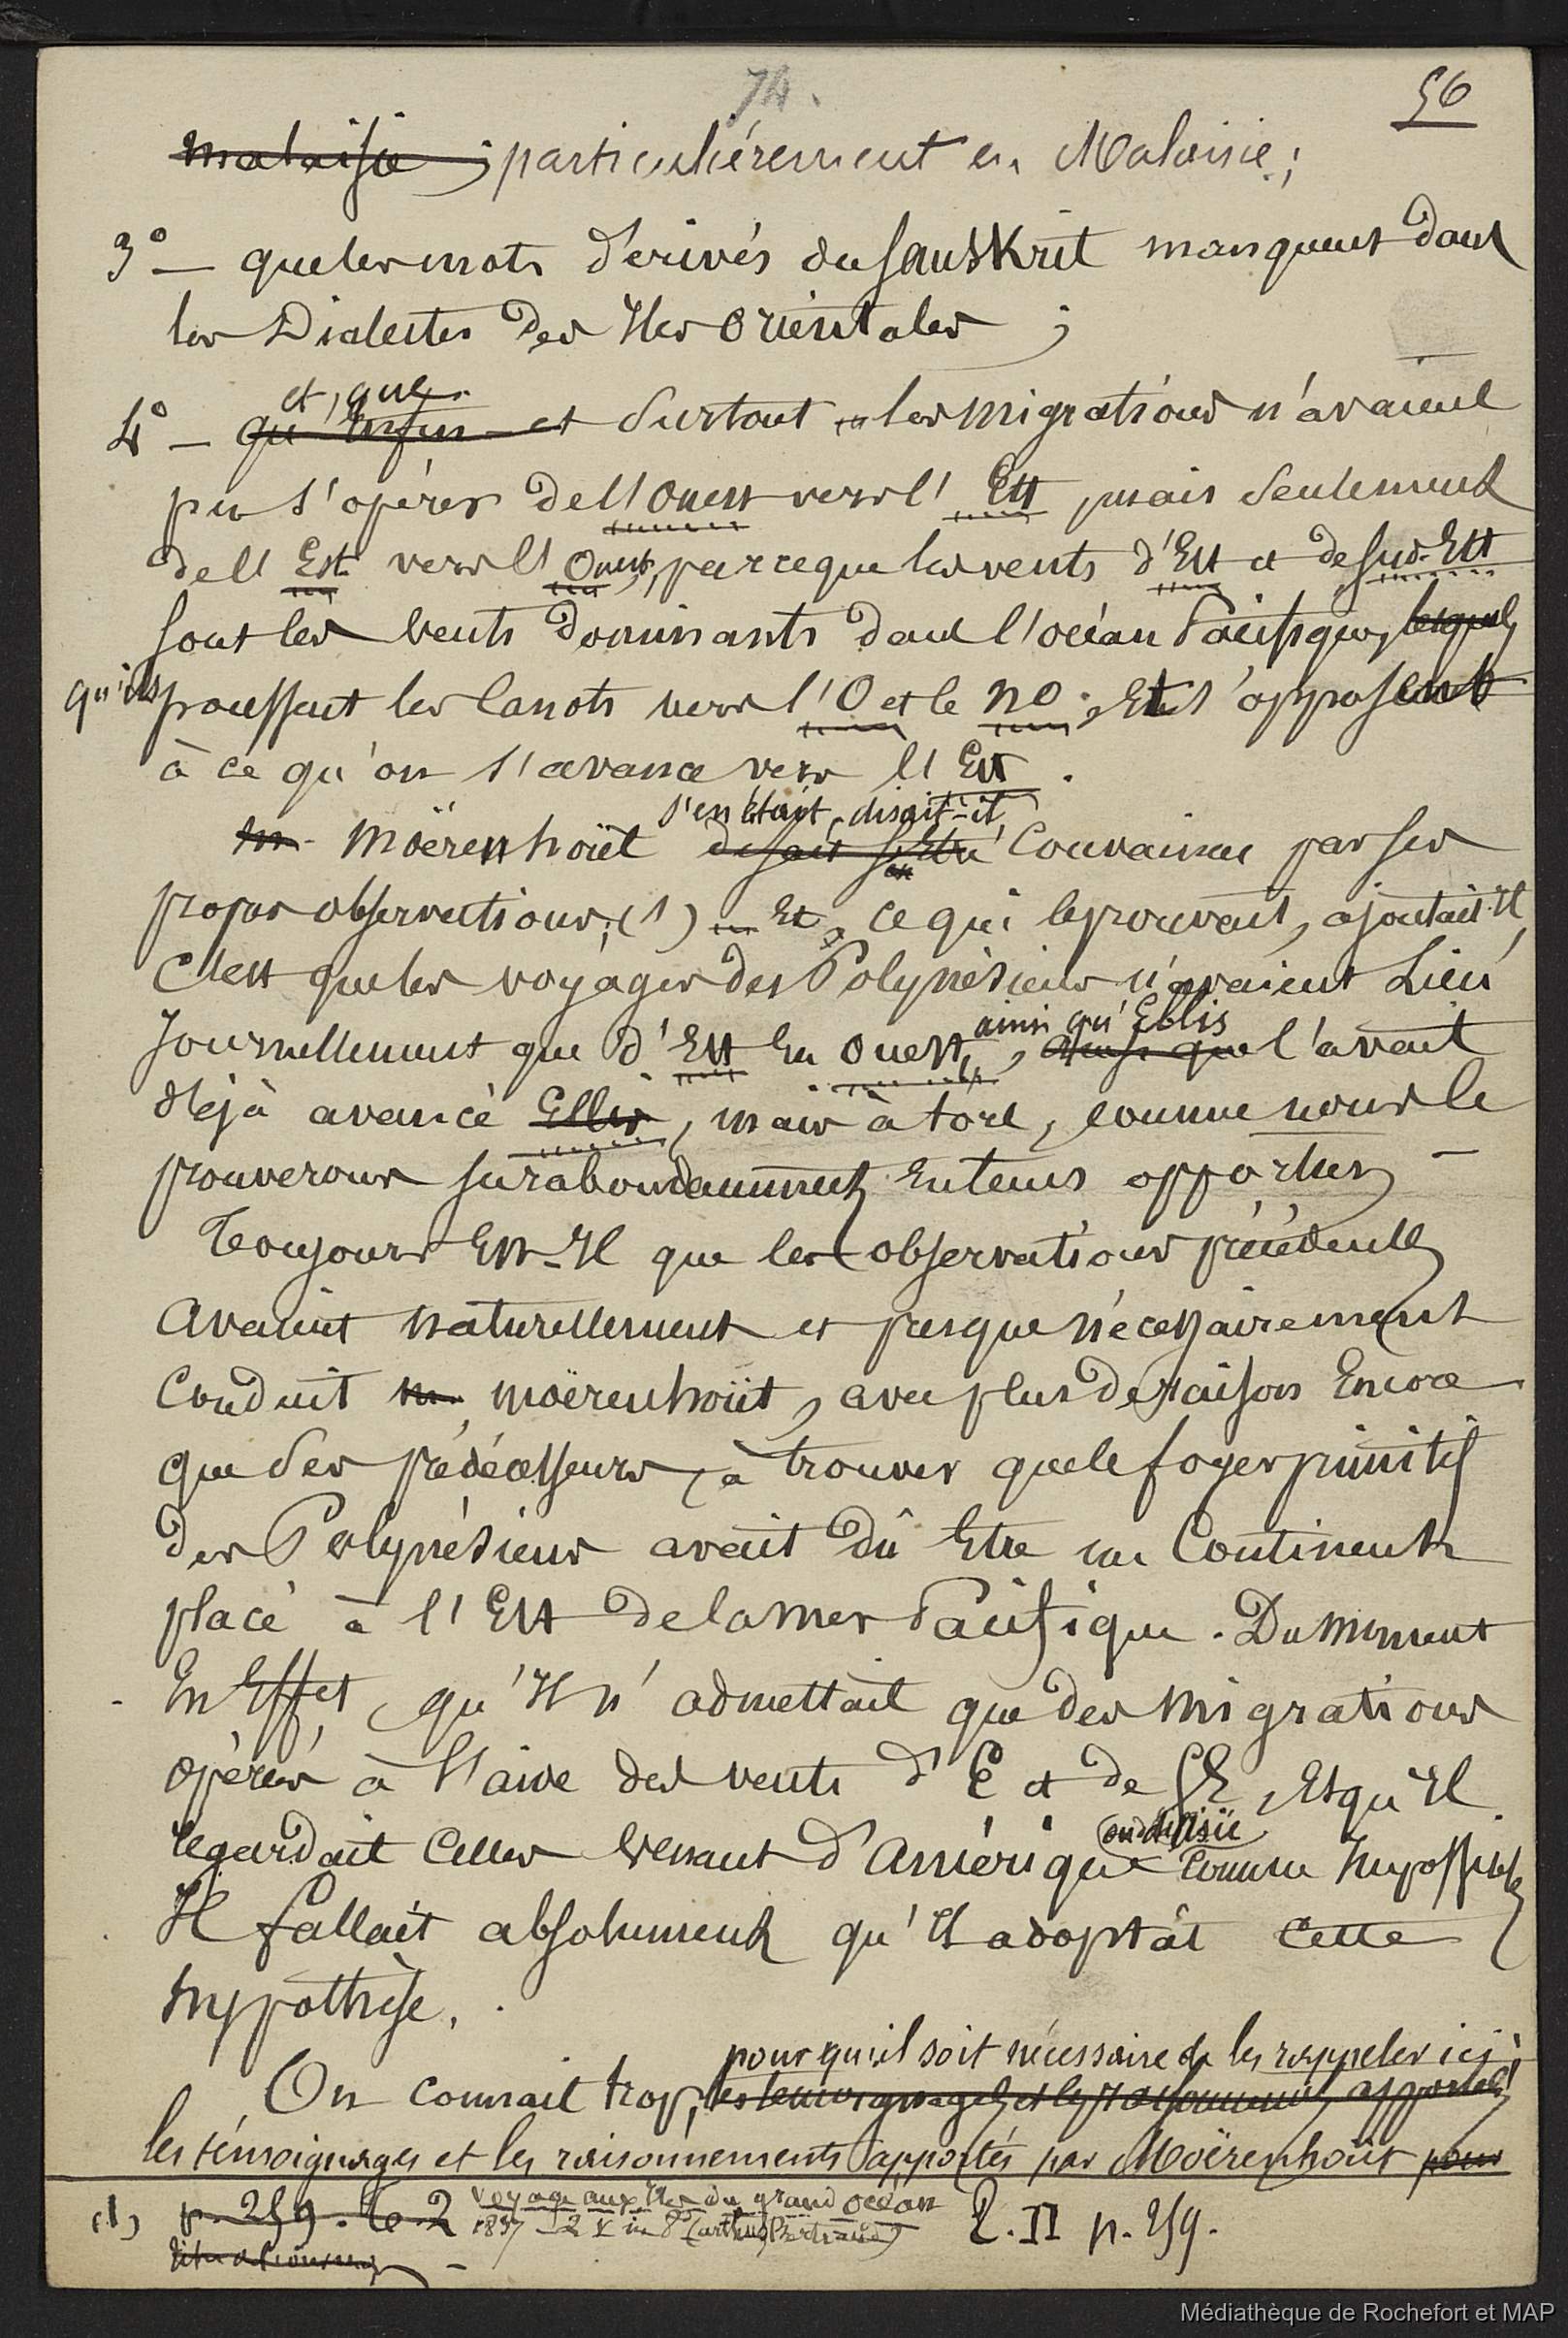 74.
56
malaisie ; particulièrement en Malaisie ;
3° — que les mots dérivés du sanskrit manquent dans
les Dialectes des Iles orientales ;
et, que
4° — qu'enfin et surtout les migrations n'avaient
pu s'opérer de l'ouest vers l'Est, mais seulement
de l'Est vers l'Ouest, parce que les vents d'Est et de sud-Est
sont les vents dominants dans l'océan Pacifique, lesquels
qu'ils poussent les canots vers l'O et le no ; Et s'opposent
à ce qu'on s'avance vers l'Est.
s'en était, disait-il,
m. Moërenhoüt disait s'être convaincu par ses
propres observations ; (1) Et, ce qui le prouvait, ajoutait-Il,
C'est que les voyages des Polynésiens n'avaient Lieu
ainsi qu'Ellis
Journellement que d'Est En Ouest, ainsi que l'avait
déjà avancé Ellis, mais à tort, comme nous le
prouverons surabondamment En tems opportun —
Toujours Est-Il que les observations précédentes
avaient naturellement et presque nécessairement
Conduit m. moërenhoüt, avec plus de raison Encore
que ses prédécesseurs, à trouver que le foyer primitif
des Polynésiens avait dû Etre un Continent
placé à l'Est de la mer Pacifique. Du moment
En Effet, qu'Il n'admettait que des migrations
opérées à l'aide des vents d'E et de SE, Et qu'Il
ou d'Asie
regardait Celles venant d'Amérique comme Impossibles
Il fallait absolument qu'Il adoptât cette
hypothèse.
pour qu'il soit nécessaire de les rappeler ici,
On connait trop, les témoignages et les raisonnements apportés
les témoignages et les raisonnements apportés par Moërenhoüt pour
(1) p. 259. te. 2 Voyage aux Iles du grand océan T. II p. 259.
1837 — 2 v in 8° (arthus Bertrand)
Médiathèque de Rochefort et MAP